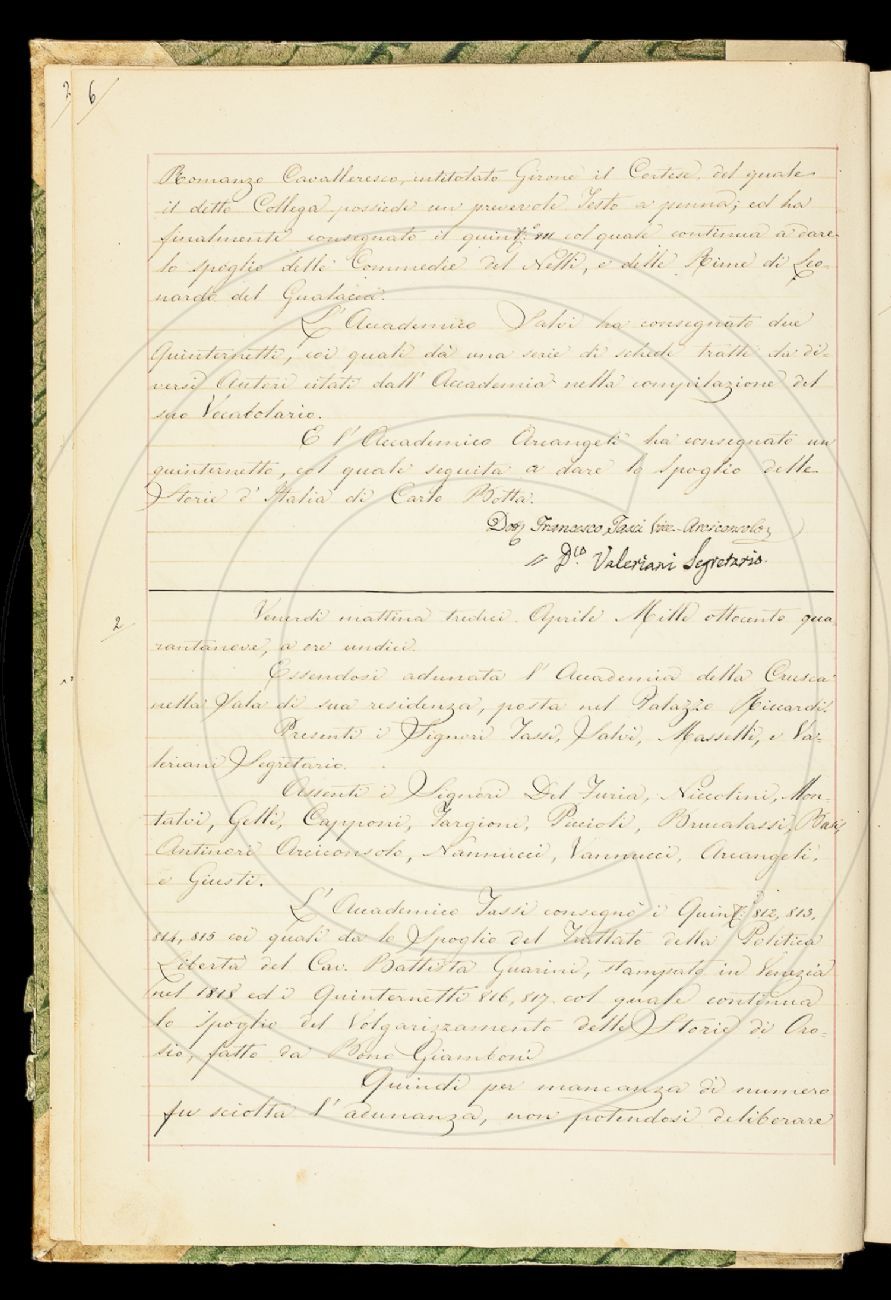 2 6
Romanzo Cavalleresco, intitolato Girone il Cortese, del quale
il detto Collega possiede un pregevole Testo a penna; ed ha
finalmente consegnato il quint.° 811 col quale continua a dare
lo spoglio delle Commedie del Nelli, e delle Rime di Leo-
nardo del Gualacca.
L'Accademico Salvi ha consegnato due
Quinternetti, coi quali dà una serie di schede tratte da di-
versi Autori citati dall'Accademia nella compilazione del
suo Vocabolario.
E l'Accademico Arcangeli ha consegnato un
quinternetto, col quale seguita a dare lo spoglio delle
Storie d'Italia di Carlo Botta.
Dott. Francesco Tassi Vice-Arciconsolo
D.co Valeriani Segretario.
2
Venerdì mattina tredici Aprile Mille ottocento qua
rantanove, a ore undici.
Essendosi adunata l'Accademia della Crusca
nella Sala di sua residenza, posta nel Palazzo Riccardi.
Presenti i Signori Tassi, Salvi, Masselli, e Va-
leriani Segretario.
Assenti i Signori Del Furia, Niccolini, Mon-
talvi, Gelli, Capponi, Targioni, Puccioli, Brucalassi,
Antinori Arciconsolo, Nannucci, Vannucci, Arcangeli,
e Giusti.
L'Accademico Tassi consegnò i Quint.i 812, 813,
814, 815 coi quali dà lo Spoglio del Trattato della Politica
Libertà del Cav. Battista Guarini, stampato in Venezia
nel 1818 ed i Quinternetti 816, 817. col quale continua
lo Spoglio del Volgarizzamento delle Storie di Oro-
sio, fatto da Bono Giamboni
Quindi per mancanza di numero
fu sciolta l'adunanza, non potendosi deliberare